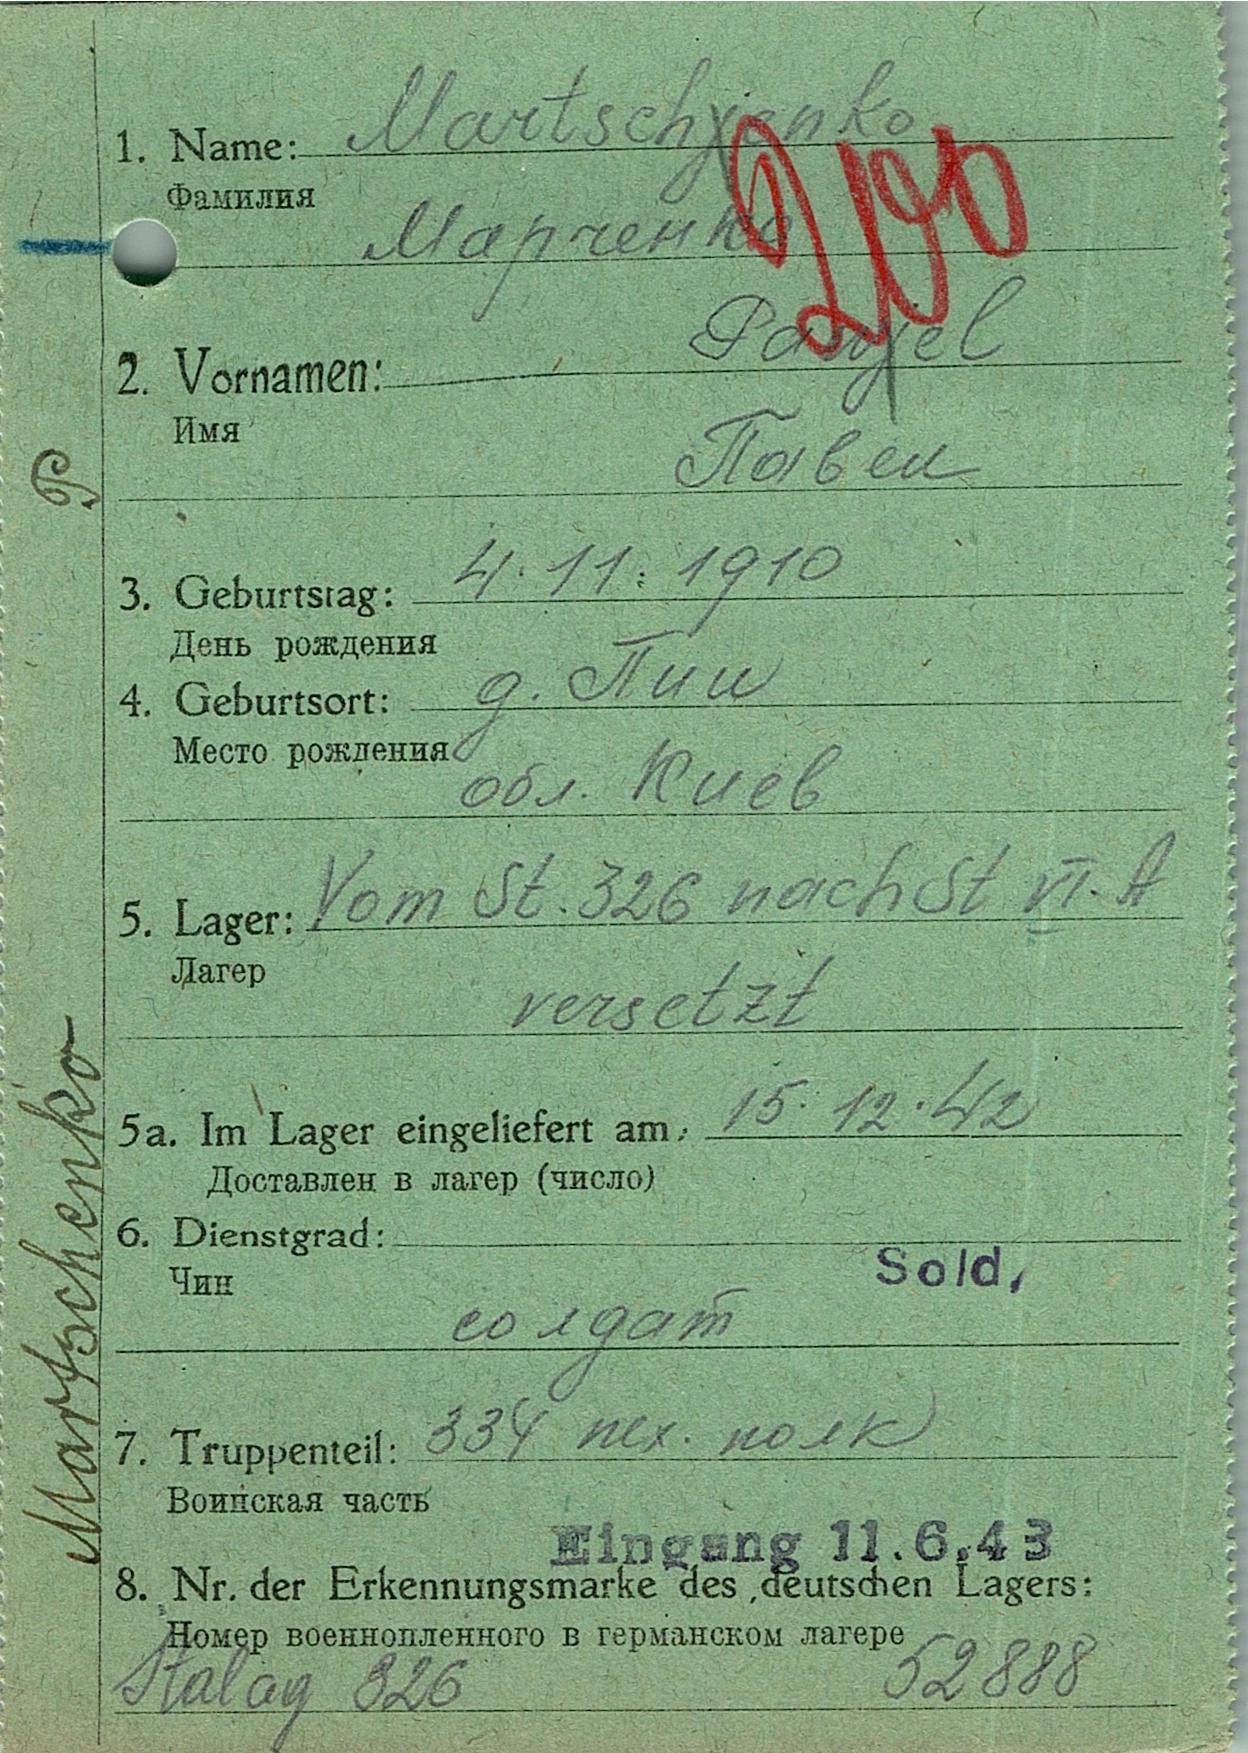 1. Name: Martschjenko
Фамилия
Марченко
200
2. Vornamen: Pawjel
Имя
Павел
P
3. Geburtstag: 4.11.1910
День рождения
4. Geburtsort: д. Пии
Место рождения
обл. Киев
5. Lager: Vom St. 326 nach St VI. A
Лагер
versetzt
5a. Im Lager eingeliefert am: 15.12.42
Доставлен в лагер (число)
6. Dienstgrad:
Чин
Sold.
солдат
7. Truppenteil: 334 пех. полк
Воинская часть
Eingang 11.6.43
8. Nr. der Erkennungsmarke des deutschen Lagers:
Номер военнопленного в германском лагере
Stalag 326 52888
Martschenko